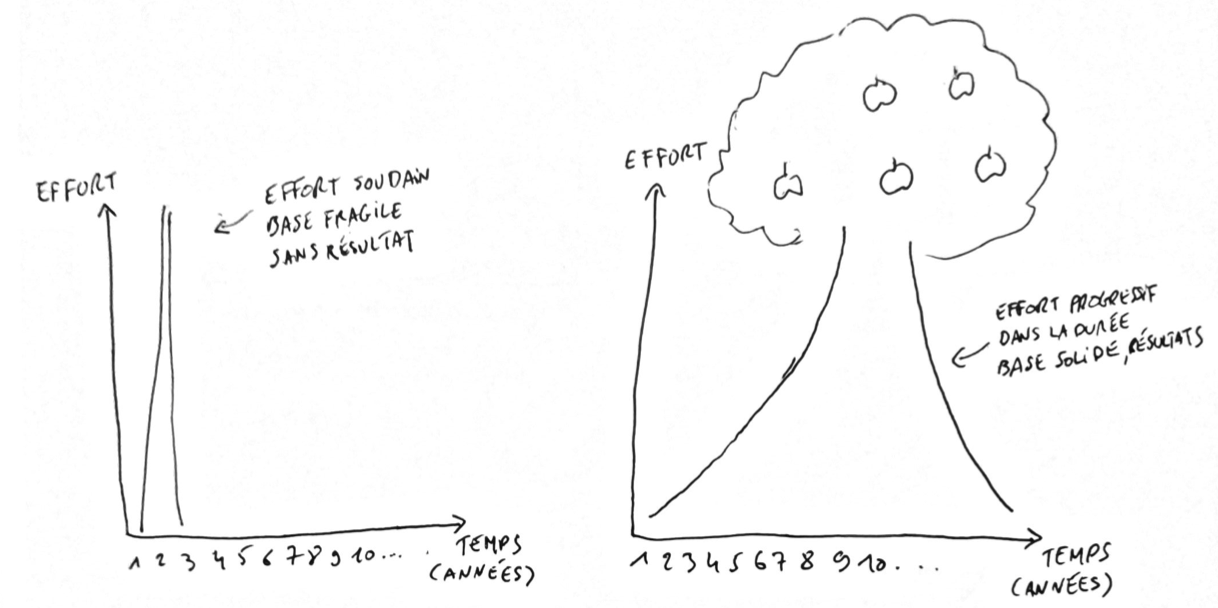 EFFORT
EFFORT SOUDAIN
BASE FRAGILE
SANS RÉSULTAT
1 2 3 4 5 6 7 8 9 10...
TEMPS
(ANNÉES)
EFFORT
EFFORT PROGRESSIF
DANS LA DURÉE
BASE SOLIDE, RÉSULTATS
1 2 3 4 5 6 7 8 9 10...
TEMPS
(ANNÉES)